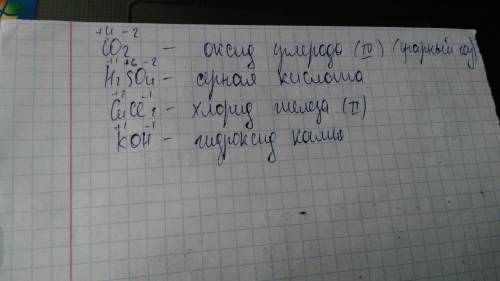 +4 -2
CO2 – оксид углерода (IV) (угарный газ)
+1 +6 -2
H2SO4 – серная кислота
+2 -1
CuCl2 – хлорид железа (II)
+1 -1
KOH – гидроксид калия